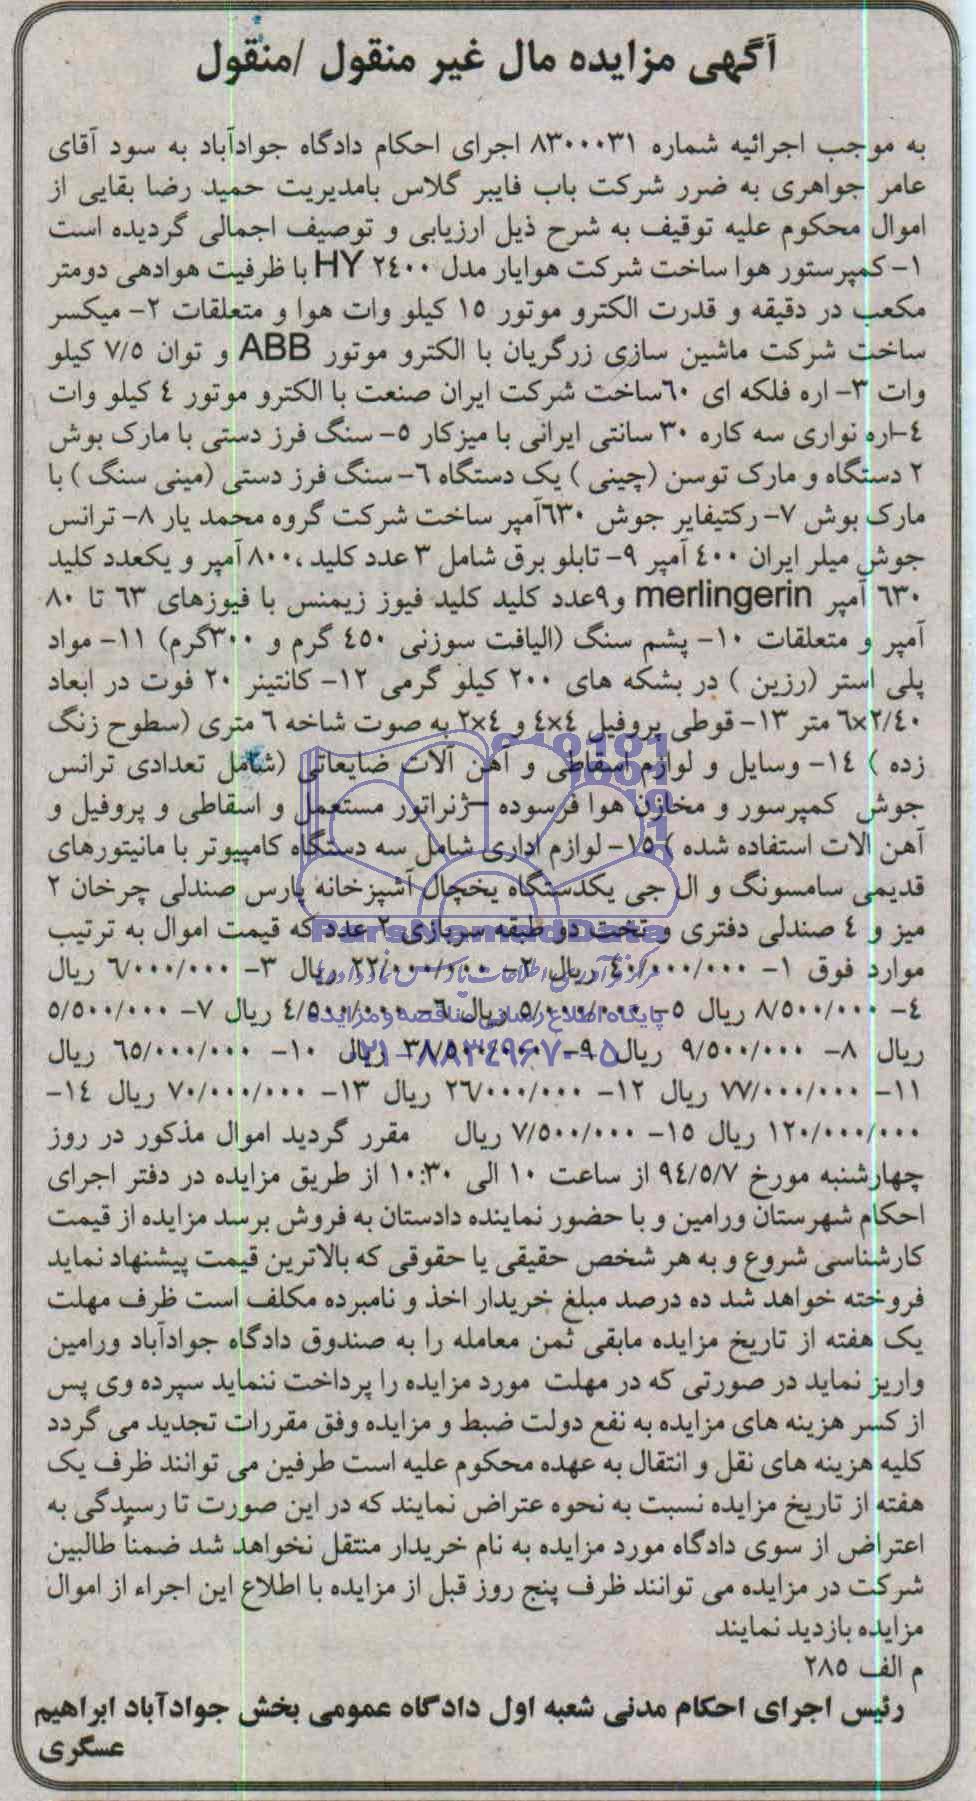 آگهی مزایده مال غیر منقول /منقول
به موجب اجرائیه شماره ۸۳۰۰۰۳۱ اجرای احکام دادگاه جوادآباد به سود آقای
عامر جواهری به ضرر شرکت باب فایبر گلاس بامدیریت حمید رضا بقایی از
اموال محکوم علیه توقیف به شرح ذیل ارزیابی و توصیف اجمالی گردیده است
۱- کمپرستور هوا ساخت شرکت هوایار مدل ۲٤۰۰ HY با ظرفیت هوادهی دومتر
مکعب در دقیقه و قدرت الکترو موتور ۱۵ کیلو وات هوا و متعلقات ۲- میکسر
ساخت شرکت ماشین سازی زرگریان با الکترو موتور ABB و توان ۷/۵ کیلو
وات ۳- اره فلکه ای ٦۰ساخت شرکت ایران صنعت با الکترو موتور ٤ کیلو وات
٤-اره نواری سه کاره ۳۰ سانتی ایرانی با میزکار ۵- سنگ فرز دستی با مارک بوش
۲ دستگاه و مارک توسن (چینی ) یک دستگاه ٦- سنگ فرز دستی (مینی سنگ ) با
مارک بوش ۷- رکتیفایر جوش ٦۳۰آمپر ساخت شرکت گروه محمد یار ۸- ترانس
جوش میلر ایران ٤۰۰ آمپر ۹- تابلو برق شامل ۳ عدد کلید ،۸۰۰ آمپر و یکعدد کلید
٦۳۰ آمپر merlingerin و۹عدد کلید کلید فیوز زیمنس با فیوزهای ٦۳ تا ۸۰
آمپر و متعلقات ۱۰- پشم سنگ (الیافت سوزنی ٤۵۰ گرم و ۳۰۰گرم) ۱۱- مواد
پلی استر (رزین ) در بشکه های ۲۰۰ کیلو گرمی ۱۲- کانتینر ۲۰ فوت در ابعاد
٦×۲/٤۰ متر ۱۳- قوطی پروفیل ٤×٤ و ٤×۲ به صوت شاخه ٦ متری (سطوح زنگ
زده ) ۱٤- وسایل و لوازم اسقاطی و آهن آلات ضایعاتی (شامل تعدادی ترانس
جوش کمپرسور و مخازن هوا فرسوده –ژنراتور مستعمل و اسقاطی و پروفیل و
آهن الات استفاده شده ) ۱۵- لوازم اداری شامل سه دستگاه کامپیوتر با مانیتورهای
قدیمی سامسونگ و ال جی یکدستگاه یخچال آشپزخانه پارس صندلی چرخان ۲
میز و ٤ صندلی دفتری و تخت دو طبقه سربازی ۲ عدد که قیمت اموال به ترتیب
ParsNamadData
موارد فوق ۱- ٤۰/۰۰۰/۰۰۰ ریال ۲- ۲۲/۰۰۰/۰۰۰ ریال ۳- ٦/۰۰۰/۰۰۰ ریال
مرکز فرآوری اطلاعات پارس نماد داده ها
٤- ۸/۵۰۰/۰۰۰ ریال ۵- ۵/۰۰۰/۰۰۰ ریال ٦- ٤/۵۰۰/۰۰۰ ریال ۷- ۵/۵۰۰/۰۰۰
پایگاه اطلاع رسانی مناقصه و مزایده
ریال ۸- ۹/۵۰۰/۰۰۰ ریال ۹- ۳۸/۵۰۰/۰۰۰ ریال ۱۰- ٦۵/۰۰۰/۰۰۰ ریال
۰۲۱-۸۸۳۴۹۶۷۰-۵
۱۱- ۷۷/۰۰۰/۰۰۰ ریال ۱۲- ۲٦/۰۰۰/۰۰۰ ریال ۱۳- ۷۰/۰۰۰/۰۰۰ ریال ۱٤-
۱۲۰/۰۰۰/۰۰۰ ریال ۱۵- ۷/۵۰۰/۰۰۰ ریال مقرر گردید اموال مذکور در روز
چهارشنبه مورخ ۹٤/۵/۷ از ساعت ۱۰ الی ۱۰:۳۰ از طریق مزایده در دفتر اجرای
احکام شهرستان ورامین و با حضور نماینده دادستان به فروش برسد مزایده از قیمت
کارشناسی شروع و به هر شخص حقیقی یا حقوقی که بالاترین قیمت پیشنهاد نماید
فروخته خواهد شد ده درصد مبلغ خریدار اخذ و نامبرده مکلف است ظرف مهلت
یک هفته از تاریخ مزایده مابقی ثمن معامله را به صندوق دادگاه جوادآباد ورامین
واریز نماید در صورتی که در مهلت مورد مزایده را پرداخت ننماید سپرده وی پس
از کسر هزینه های مزایده به نفع دولت ضبط و مزایده وفق مقررات تجدید می گردد
کلیه هزینه های نقل و انتقال به عهده محکوم علیه است طرفین می توانند ظرف یک
هفته از تاریخ مزایده نسبت به نحوه عتراض نمایند که در این صورت تا رسیدگی به
اعتراض از سوی دادگاه مورد مزایده به نام خریدار منتقل نخواهد شد ضمناً طالبین
شرکت در مزایده می توانند ظرف پنج روز قبل از مزایده با اطلاع این اجراء از اموال
مزایده بازدید نمایند
م الف ۲۸۵
رئیس اجرای احکام مدنی شعبه اول دادگاه عمومی بخش جوادآباد ابراهیم
عسگری